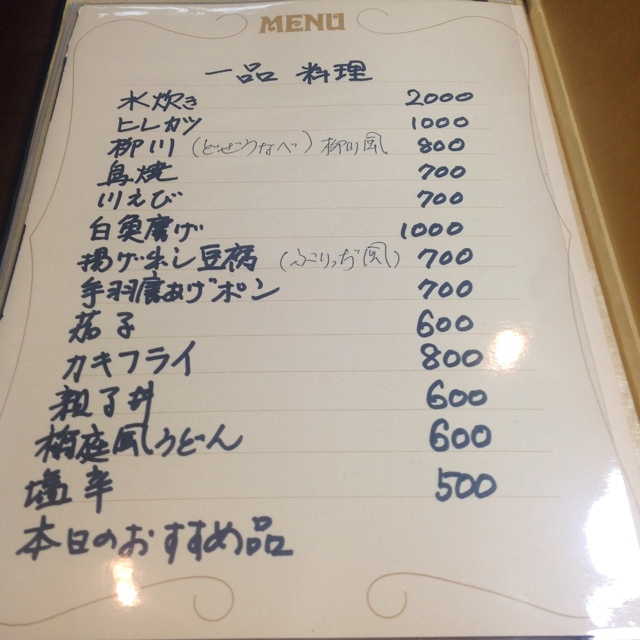 MENU
一品 料理
水炊き 2000
ヒレカツ 1000
柳川 (どぜうなべ) 柳川風 800
鳥焼 700
川えび 700
白魚唐げ 1000
揚げ出し豆腐 700
手羽唐あげポン 700
茄子 600
カキフライ 800
親子丼 600
風うどん 600
塩辛 500
本日のおすすめ品